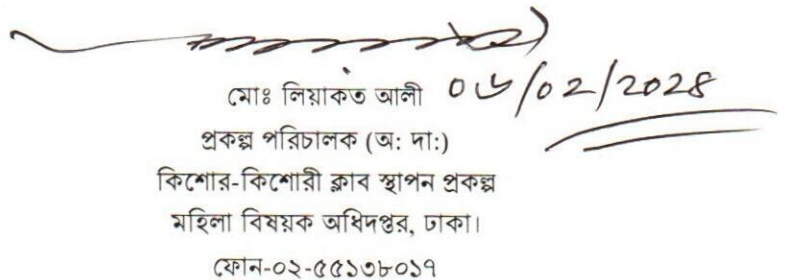 মোঃ লিয়াকত আলী ০৬/০২/২০২৪
প্রকল্প পরিচালক (অ: দা:)
কিশোর-কিশোরী ক্লাব স্থাপন প্রকল্প
মহিলা বিষয়ক অধিদপ্তর, ঢাকা।
ফোন-০২-৫৫১৩৮০১৭